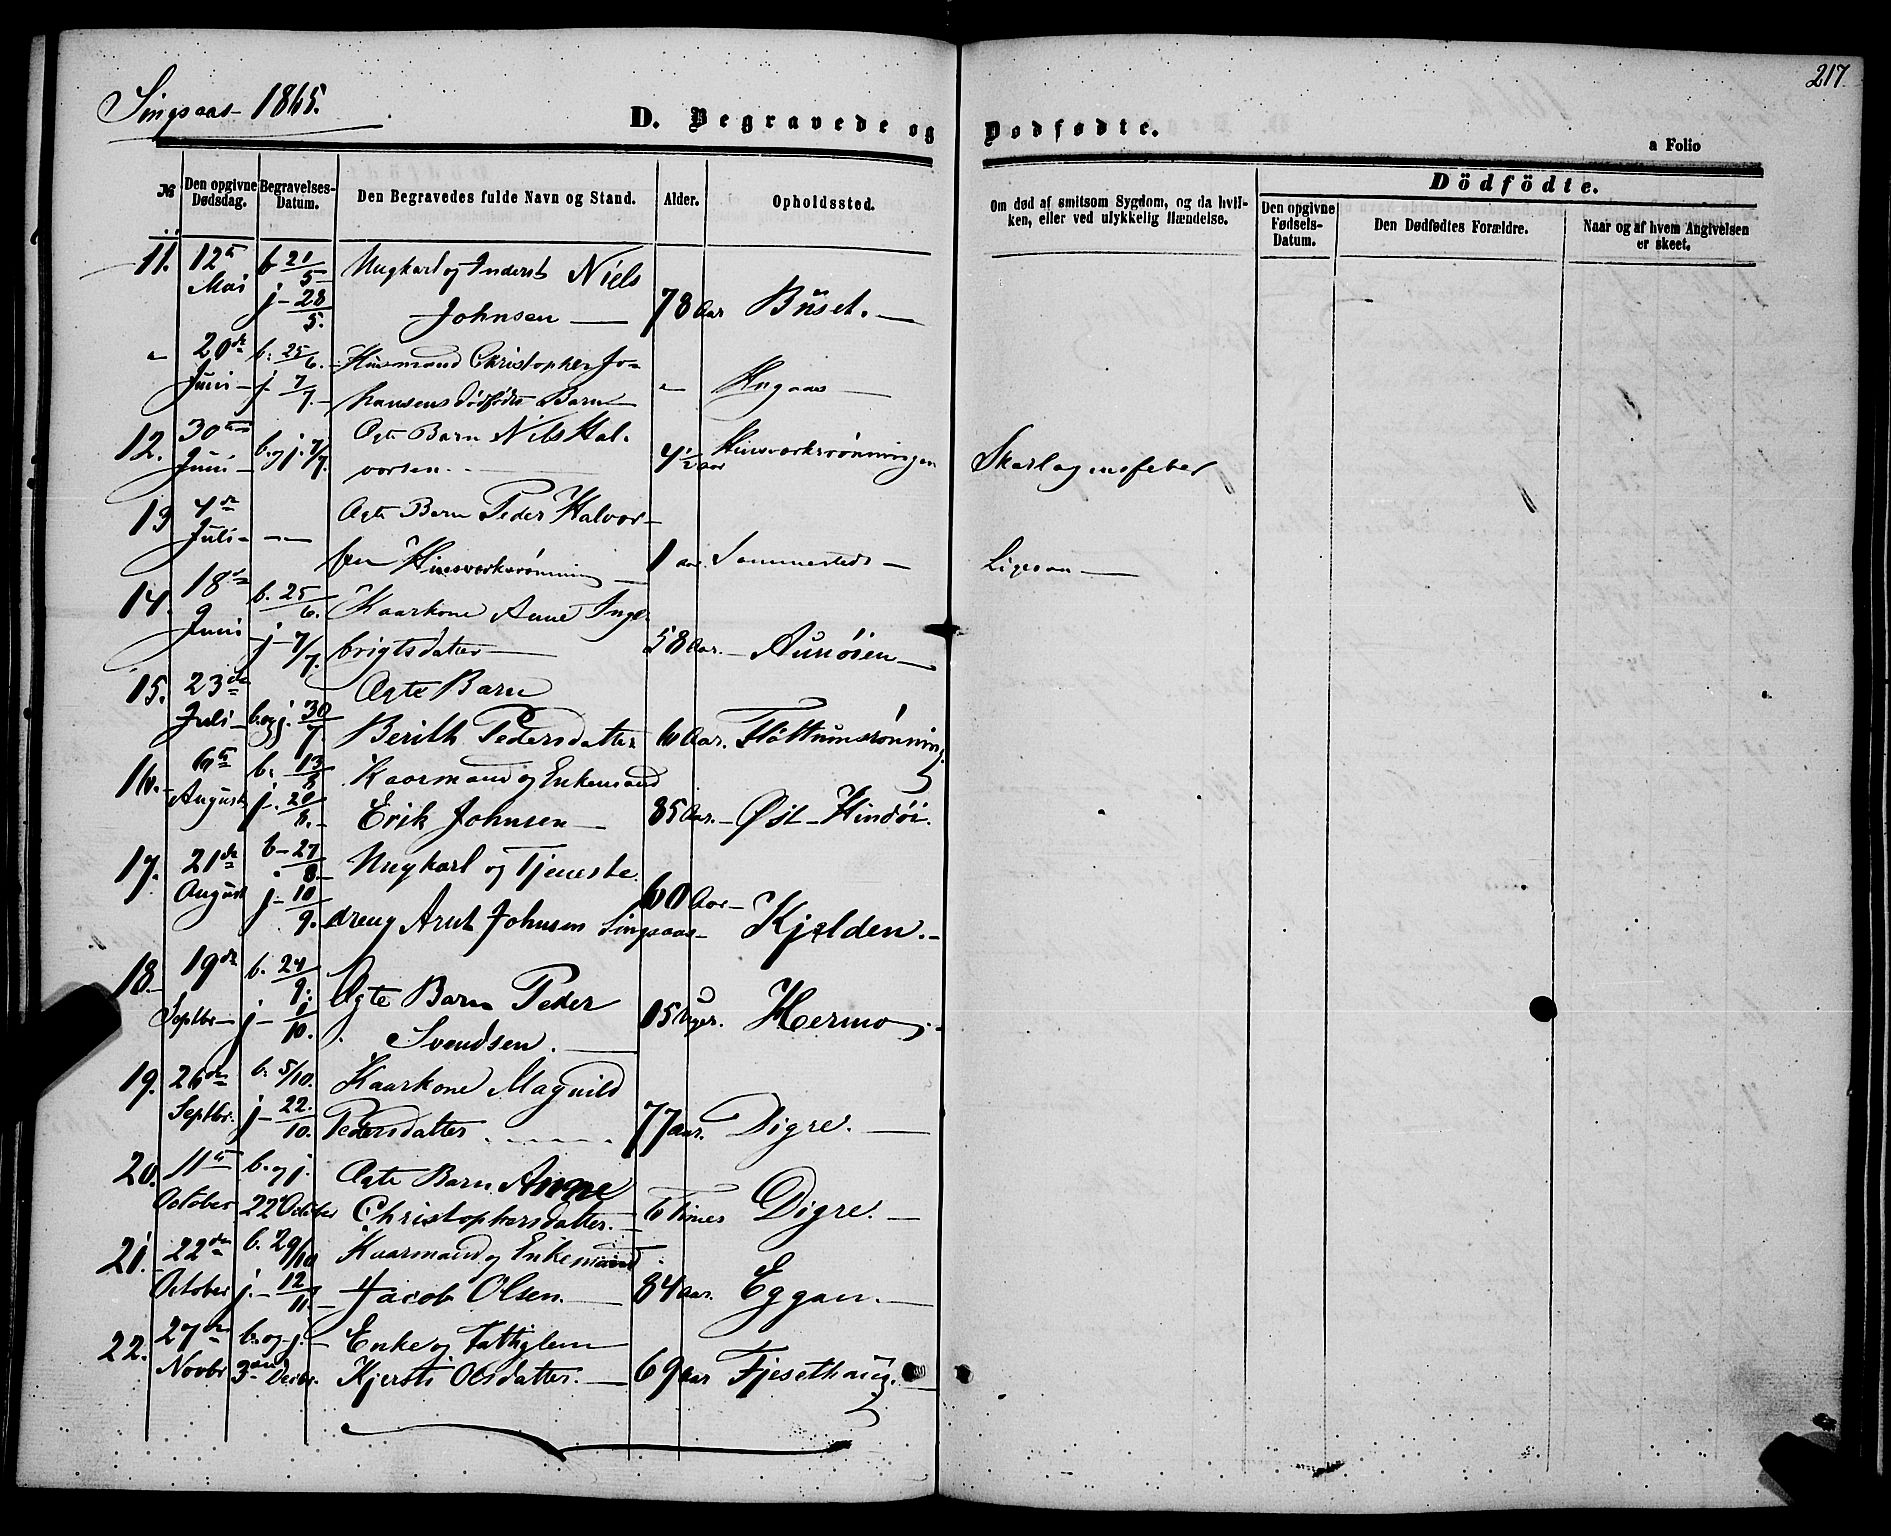 217.
Singsaas 1865.
D. Begravede og Dødfødte.
a Folio
№ Den opgivne Dødsdag. Begravelses-Datum. Den Begravedes fulde Navn og Stand. Alder. Opholdssted. Om død af smitsom Sygdom, og da hvilken, eller ved ulykkelig Hændelse.
Dödfödte.
Den opgivne Fødsels-Datum. Den Dødfødtes Forældre. Naar og af hvem Angivelsen er skeet.
11. 12te b 21/5 Ungkarl og Inderst Niels
Mai j- 28/5. Johnsen — 78 Aar Buset. —
" 20de b. 25/6. Huusmand Christopher Jo-
Juni j- 7/7. hansens dødfødte Barn " —
12. 30te b. og j. 7/7. Ægte Barn Nils Hal-
Juni vorsen. 4½ aar Skarlagensfeber
13 4de Ægte Barn Peder Halvor-
Juli — sen 1 aar. Sammesteds — Ligesaa —
14. 18de b. 25/6. Kaarkone Anne Inge-
Juni j- 7/7. brigtsdatter — 58 Aar. —
15. 23de Ægte Barn
Juli b. og j. 30/7. Berith Pedersdatter 6 Aar. Fløttumsrønning.
16. 6te b. 13/8 Kaarmand og Enkemand
August j. 20/8. Erik Johnsen — 85 Aar. — Øst-Hindøi.
17. 21de b- 27/8. Ungkarl og Tjeneste-
August j- 10/9. dreng Arnt Johnsen Singsaas 60 Aar — Kjelden. —
18. 19de b. 24/9. Ægte Barn Peder
Septbr. j- 1/10. Svendsen. — 15 Uger. Hermo.
19. 26de b. 5/10. Kaarkone Magnild
Septbr. j- 22./10. Pedersdatter 77 aar. Digre. —
20. 11te b. og j. Ægte Barn Anne
October 22 October Christophersdatter. — 6 Timer Digre. —
21. 22de b. 29/10 Kaarmand og Enkemand
October j.- 12/11. Jacob Olsen. — 84 Aar. Eggan. —
22. 27de b. og j. — Enke og Fattiglem
Novbr. 3die Decbr. Kjersti Olsdatter. — 69 aar Fjesethaug.